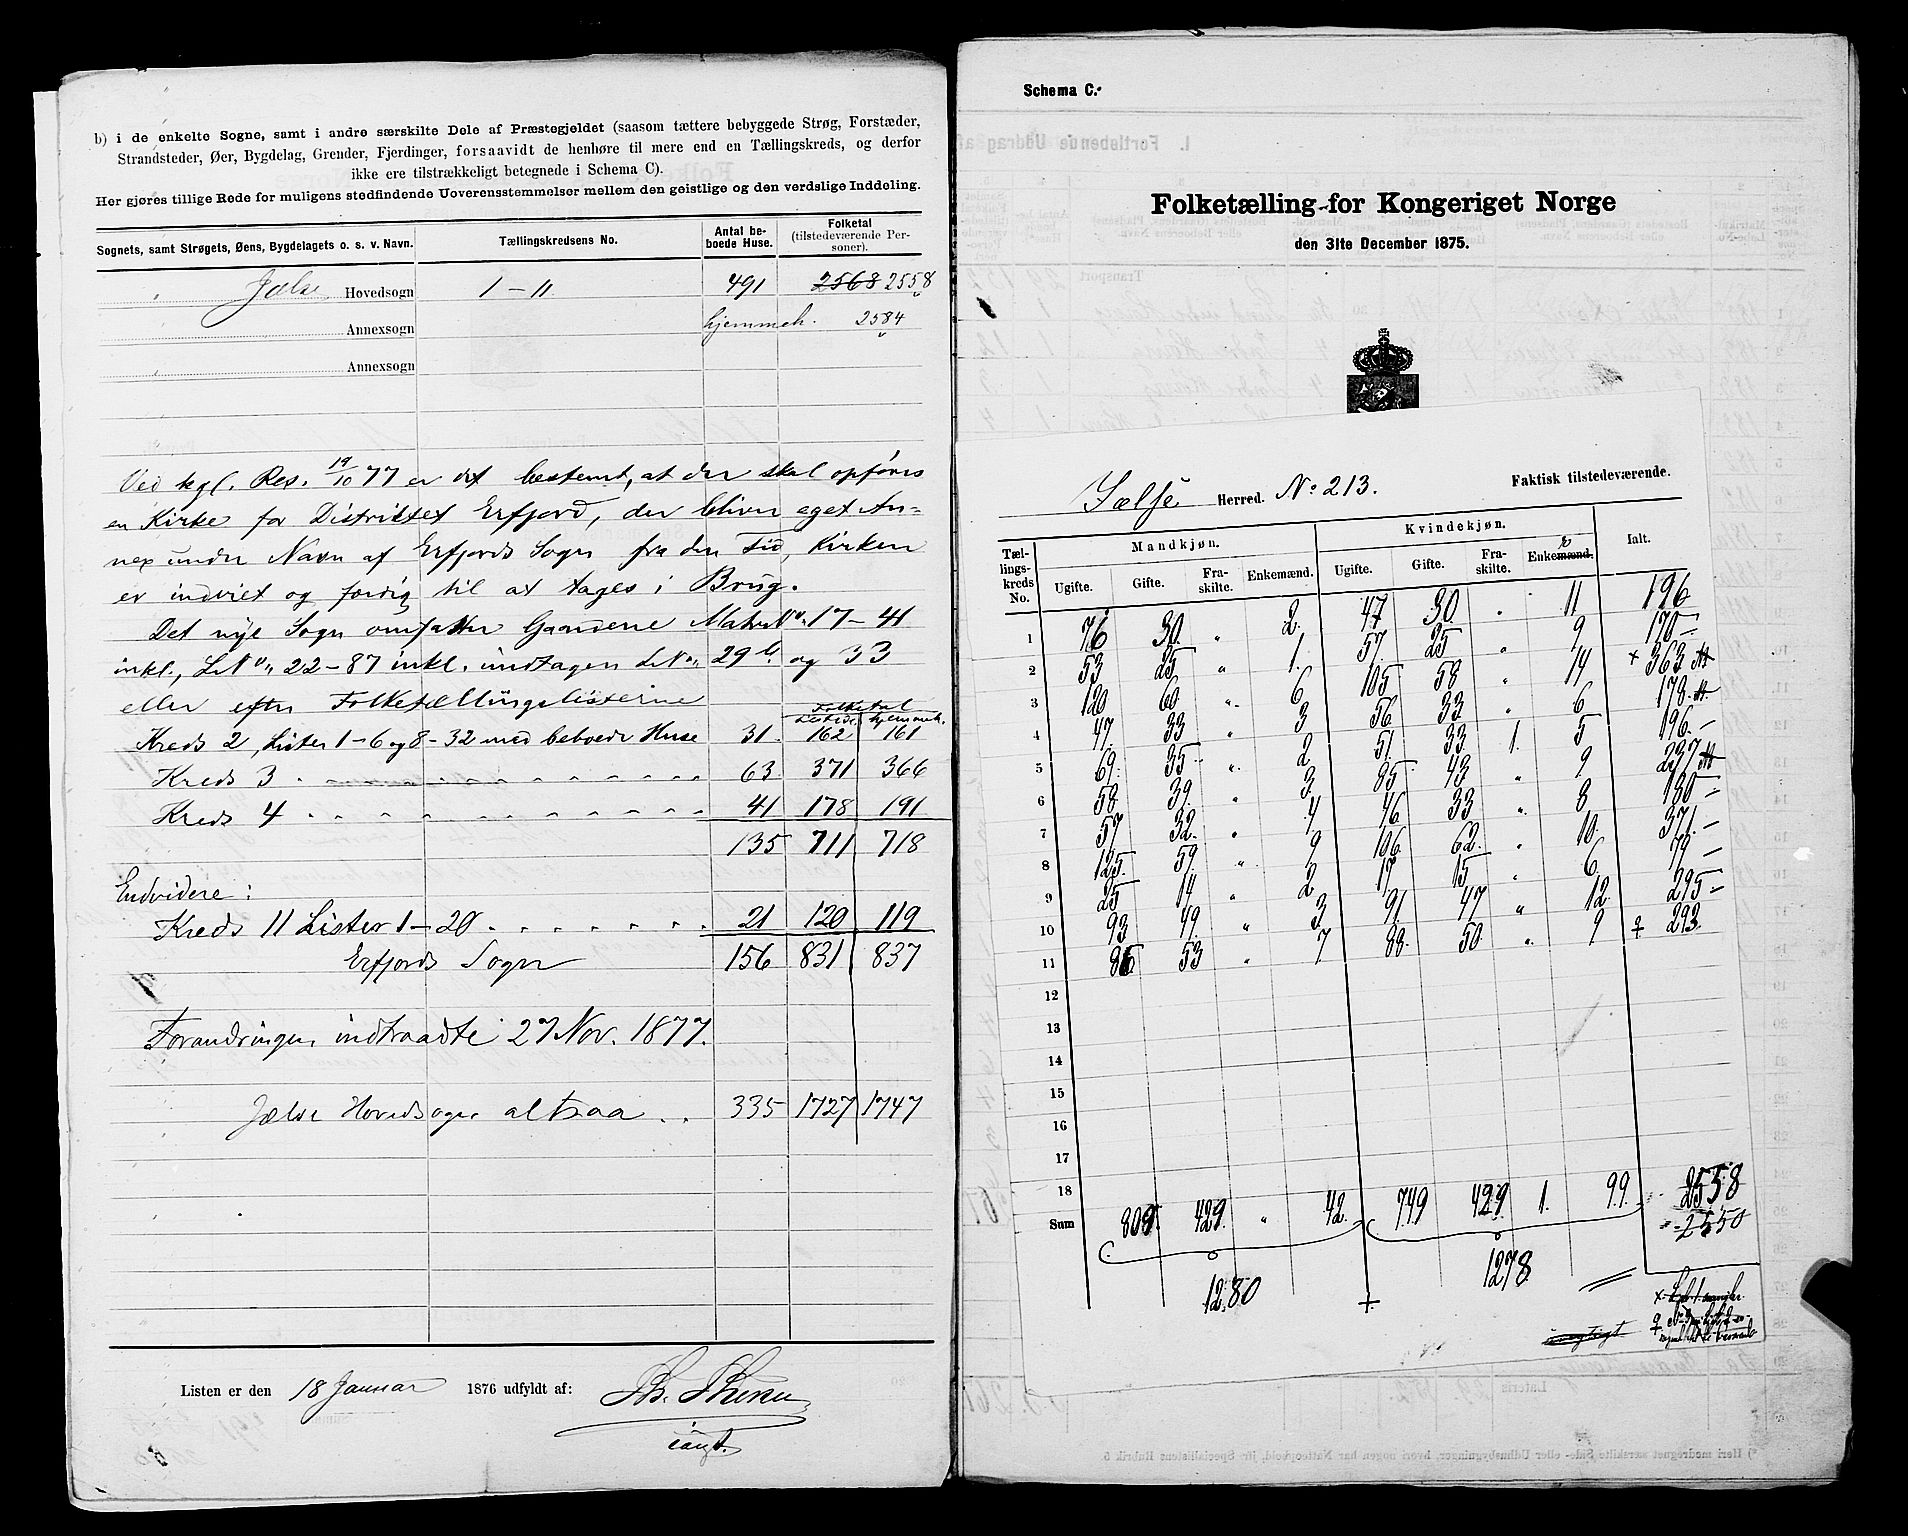 b) i de enkelte Sogne, samt i andre særskilte Dele af Præstegjeldet (saasom tættere bebyggede Strøg, Forstæder,
Strandsteder, Øer, Bygdelag, Grender, Fjerdinger, forsaavidt de henhøre til mere end en Tællingskreds, og derfor
ikke ere tilstrækkeligt betegnede i Schema C).
Her gjøres tillige Rede for muligens stedfindende Uoverensstemmelser mellem den geistlige og den verdslige Inddeling.
Sognets, samt Strøgets, Øens, Bygdelagets o. s. v. Navn. Tællingskredsens No. Antal beboede Huse. Folketal (tilstedeværende Personer).
Jælse Hovedsogn 1 - 11 491 2568 2558
Annexsogn hjemmeh. 2584
Annexsogn
Ved kgl. Res. 19/10 77 er det bestemt, at der skal opføres
en Kirke for Distriktet Erfjord, der bliver eget An-
nex under Navn af Erfjords Sogn fra den Tid, Kirken
er indviet og færdig til at tages i Brug.
Det nye Sogn omfatter Gaardene Matr. No. 17 - 41
inkl., L.No. 22-87 inkl. undtagen L.No. 29 b. og 33
eller efter Folketællingslisterne
Folketal
tilstede. hjemmeh.
Kreds 2, Lister 1-6 og 8-32 med beboede Huse 31. 162 161
Kreds 3 63. 371 366
Kreds 4 41 178 191
135 711 718
Endvidere:
Kreds 11 Lister 1-20 21 120 119
Erfjords Sogn 156 831 837
Forandringen indtraadte 27 Nov. 1877.
Jælse Hovedsogn altsaa 335 1727 1747
Listen er den 18 Januar 1876 udfyldt af:
Schema C.
Folketælling for Kongeriget Norge
den 31te December 1875.
Jælse Herred. No. 213. Faktisk tilstedeværende.
Tællingskreds No. Mandkjøn. Kvindekjøn. Ialt.
Ugifte. Gifte. Fraskilte. Enkemænd. Ugifte. Gifte. Fraskilte. Enkemænd.
1 76 30 " 2. 47 30. " 11 196
2 53 25 " 1. 57. 25 " 9 170 -
3 120 60 " 6 105 58 " 14 × 363
4 47. 33 " 3 56 33 " 6 178.
5 69. 35 " 2 51 33. 1. 5 196. -
6 58 39. " 3. 85. 43 " 9 237
7 57 32. " 4 46 33 " 8 180 -
8 125. 59. " 9 106 62. " 10. 371. -
9 25 14 " 2 17 15 " 6 79 -
10 93 49. " 3 91 47 " 12. 295 -
11 86 53 " 7 88. 50. " 9 ♀ 293.
12
13
14
15
16
17
18
Sum 809. 429. " 42. 749 429 1. 99. 2558
2550
1280 1278